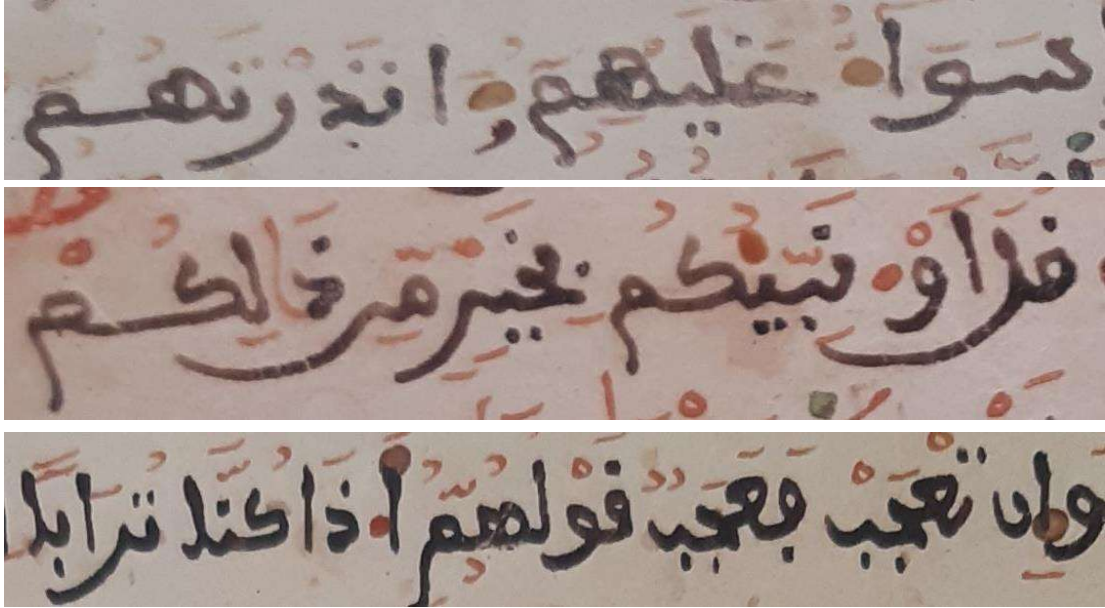 سَوَآءٌ عَلَيْهِمُ ءَانذَرْتَهُمْ
قُلَ اَوْ۬نَبِّئُكُم بِخَيْرٍ مِّن ذَٰلِكُمْ
وَإِن تَعْجَبْ فَعَجَبٌ قَوْلُهُمُ أَ.ذَا كُنَّا تُرَابًا